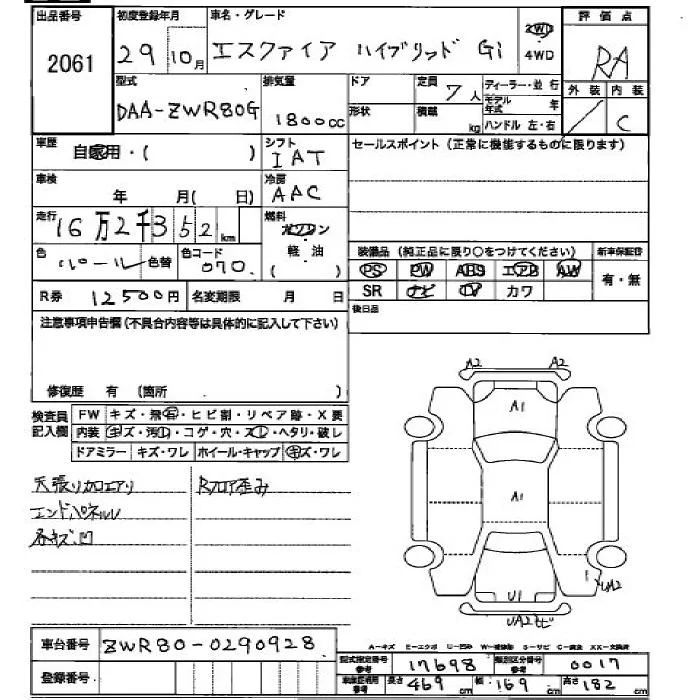 出品番号 初度登録年月 車名・グレード 評価点
2061 29 10月 エスクァイア ハイブリッド Gi 2WD 4WD RA
型式 排気量 ドア 定員 7人 ディーラー・並行 外装 内装
DAA-ZWR80G 1800cc 形状 積載 kg モデル年式 年 ハンドル 左・右 / C
車歴 自家用・( ) シフト IAT セールスポイント (正常に機能するものに限ります)
車検 年 月( 日) 冷房 AAC
走行 16万2千352km 燃料 ガソリン 軽・油 ( )
色 パール 色替 色コード 070
装備品 (純正品に限り○をつけてください) 新車保証書
PS PW ABS エアB AW 有・無
SR ナビ TV カワ
R券 12500円 名変期限 月 日 後日品
注意事項申告欄 (不具合内容等は具体的に記入して下さい)
修復歴 有 (箇所 )
検査員記入欄 FW キズ・飛石・ヒビ割・リペア跡・X要
内装 キズ・汚レ・コゲ・穴・スレ・ヘタリ・破レ
ドアミラー キズ・ワレ ホイール・キャップ キズ・ワレ
天張リカロエアリ Rフロア歪み
エンドパネル
各キズ、凹
A2 A2
A1
A1
U1
UA2
UA2 サビ
車台番号 ZWR80-0290928
A-キズ E-エクボ U-凹み S-サビ C-腐食 XX-交換済
登録番号 型式指定番号 参考 17698 類別区分番号 参考 0017
車体証明用 参考 長さ 469 cm 幅 169 cm 高さ 182 cm